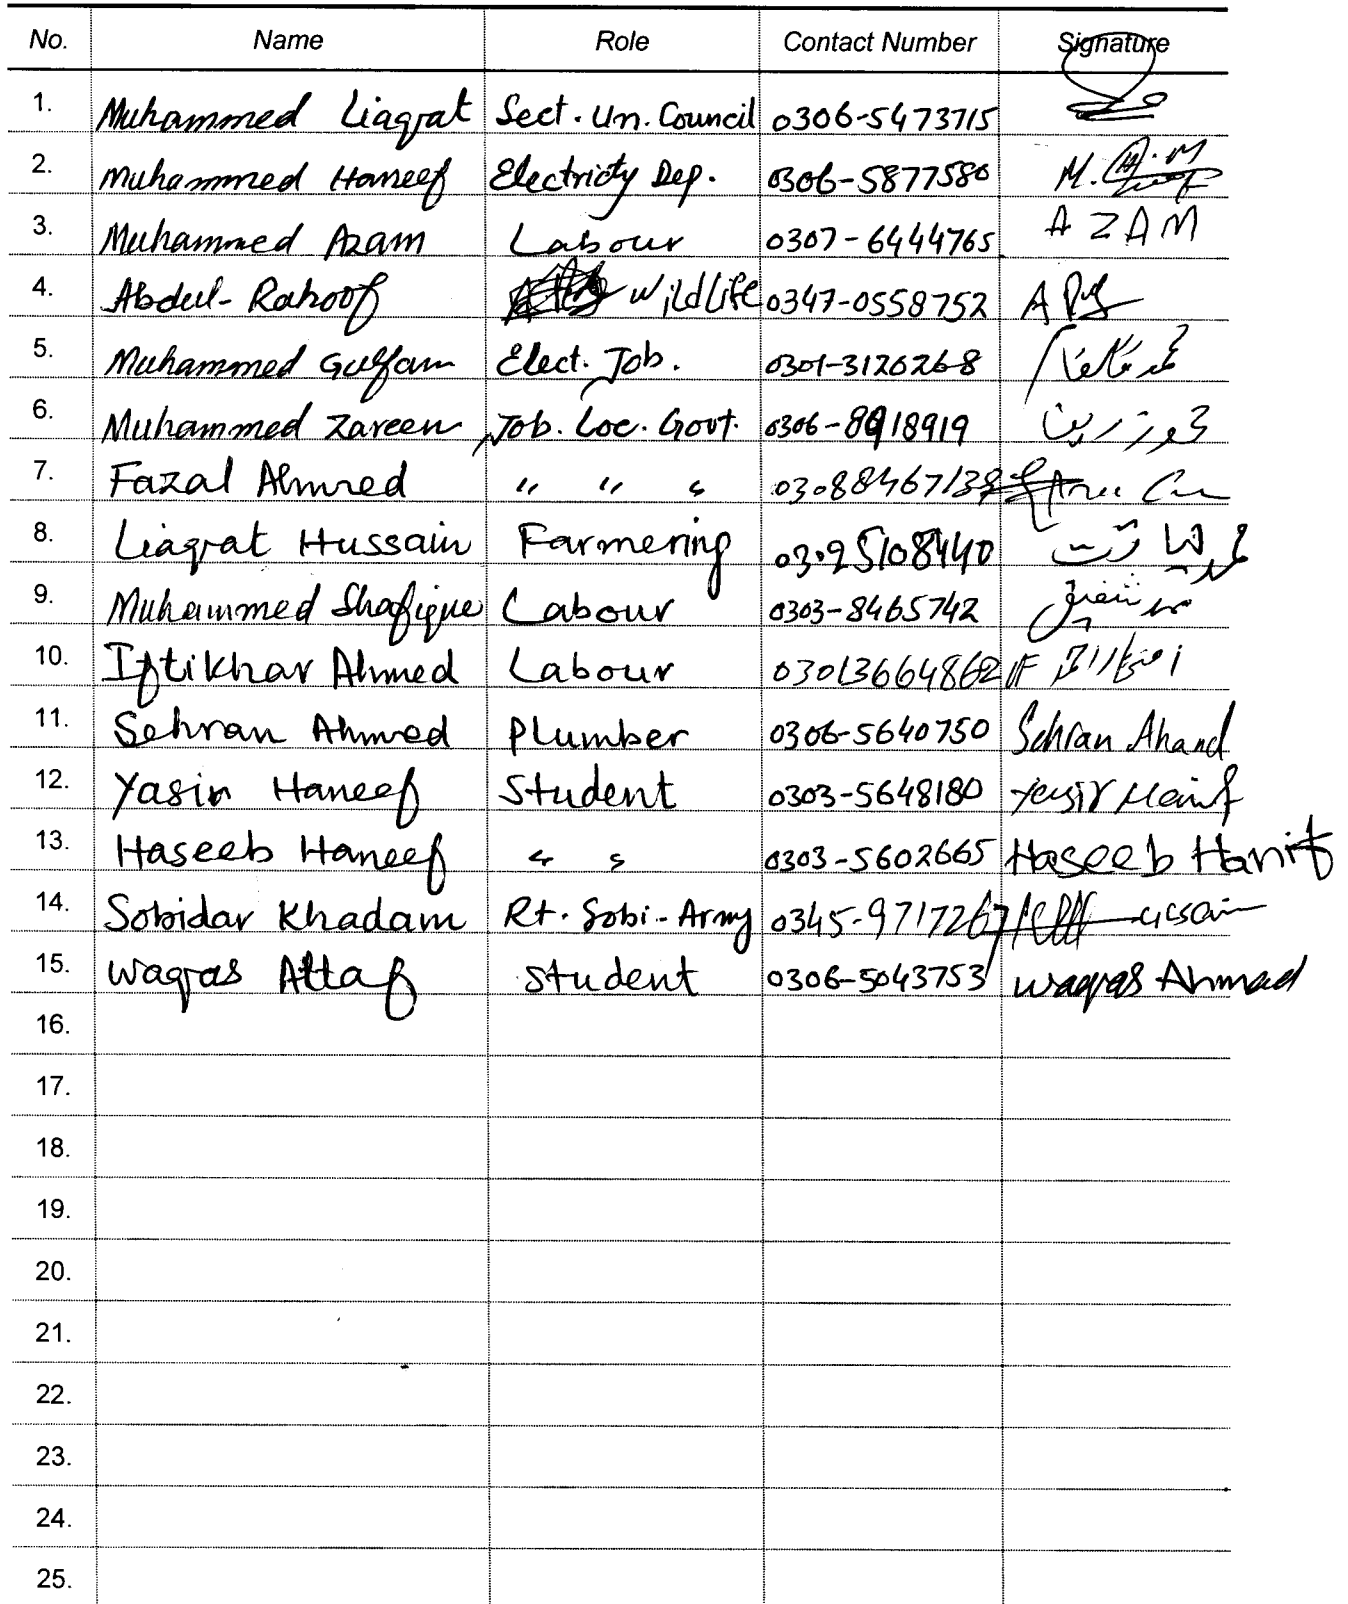 No. Name Role Contact Number Signature
1. Muhammed Liaqrat Sect. Un. Council 0306-5473715
2. Muhammed Haneef Electricty Dep. 0306-5877580 M.
3. Muhammed Azam Labour 0307-6444765 AZAM
4. Abdul-Rahoof Wildlife 0347-0558752
5. Muhammed Gulfam Elect. Job. 0301-3126268
6. Muhammed Zareen Job. Loc. Govt. 0306-8918919 محمد زرین
7. Fazal Ahmed " " "
8. Liaqrat Hussain Farmering 03025108440
9. Muhammed Shafique Labour 0303-8465742 محمد شفیق
10. Iftikhar Ahmed Labour 03013664862
11. Sehran Ahmed Plumber 0306-5640750 Sehran Ahamd
12. Yasir Haneef Student 0303-5648180 Yasir Hanif
13. Haseeb Haneef " " 0303-5602665 Haseeb Hanif
14. Sobidar Khadam Rt. Sobi-Army 0345-9717267
15. Waqras Altaf Student 0306-5043753 Waqras Ahmad
16.
17.
18.
19.
20.
21.
22.
23.
24.
25.